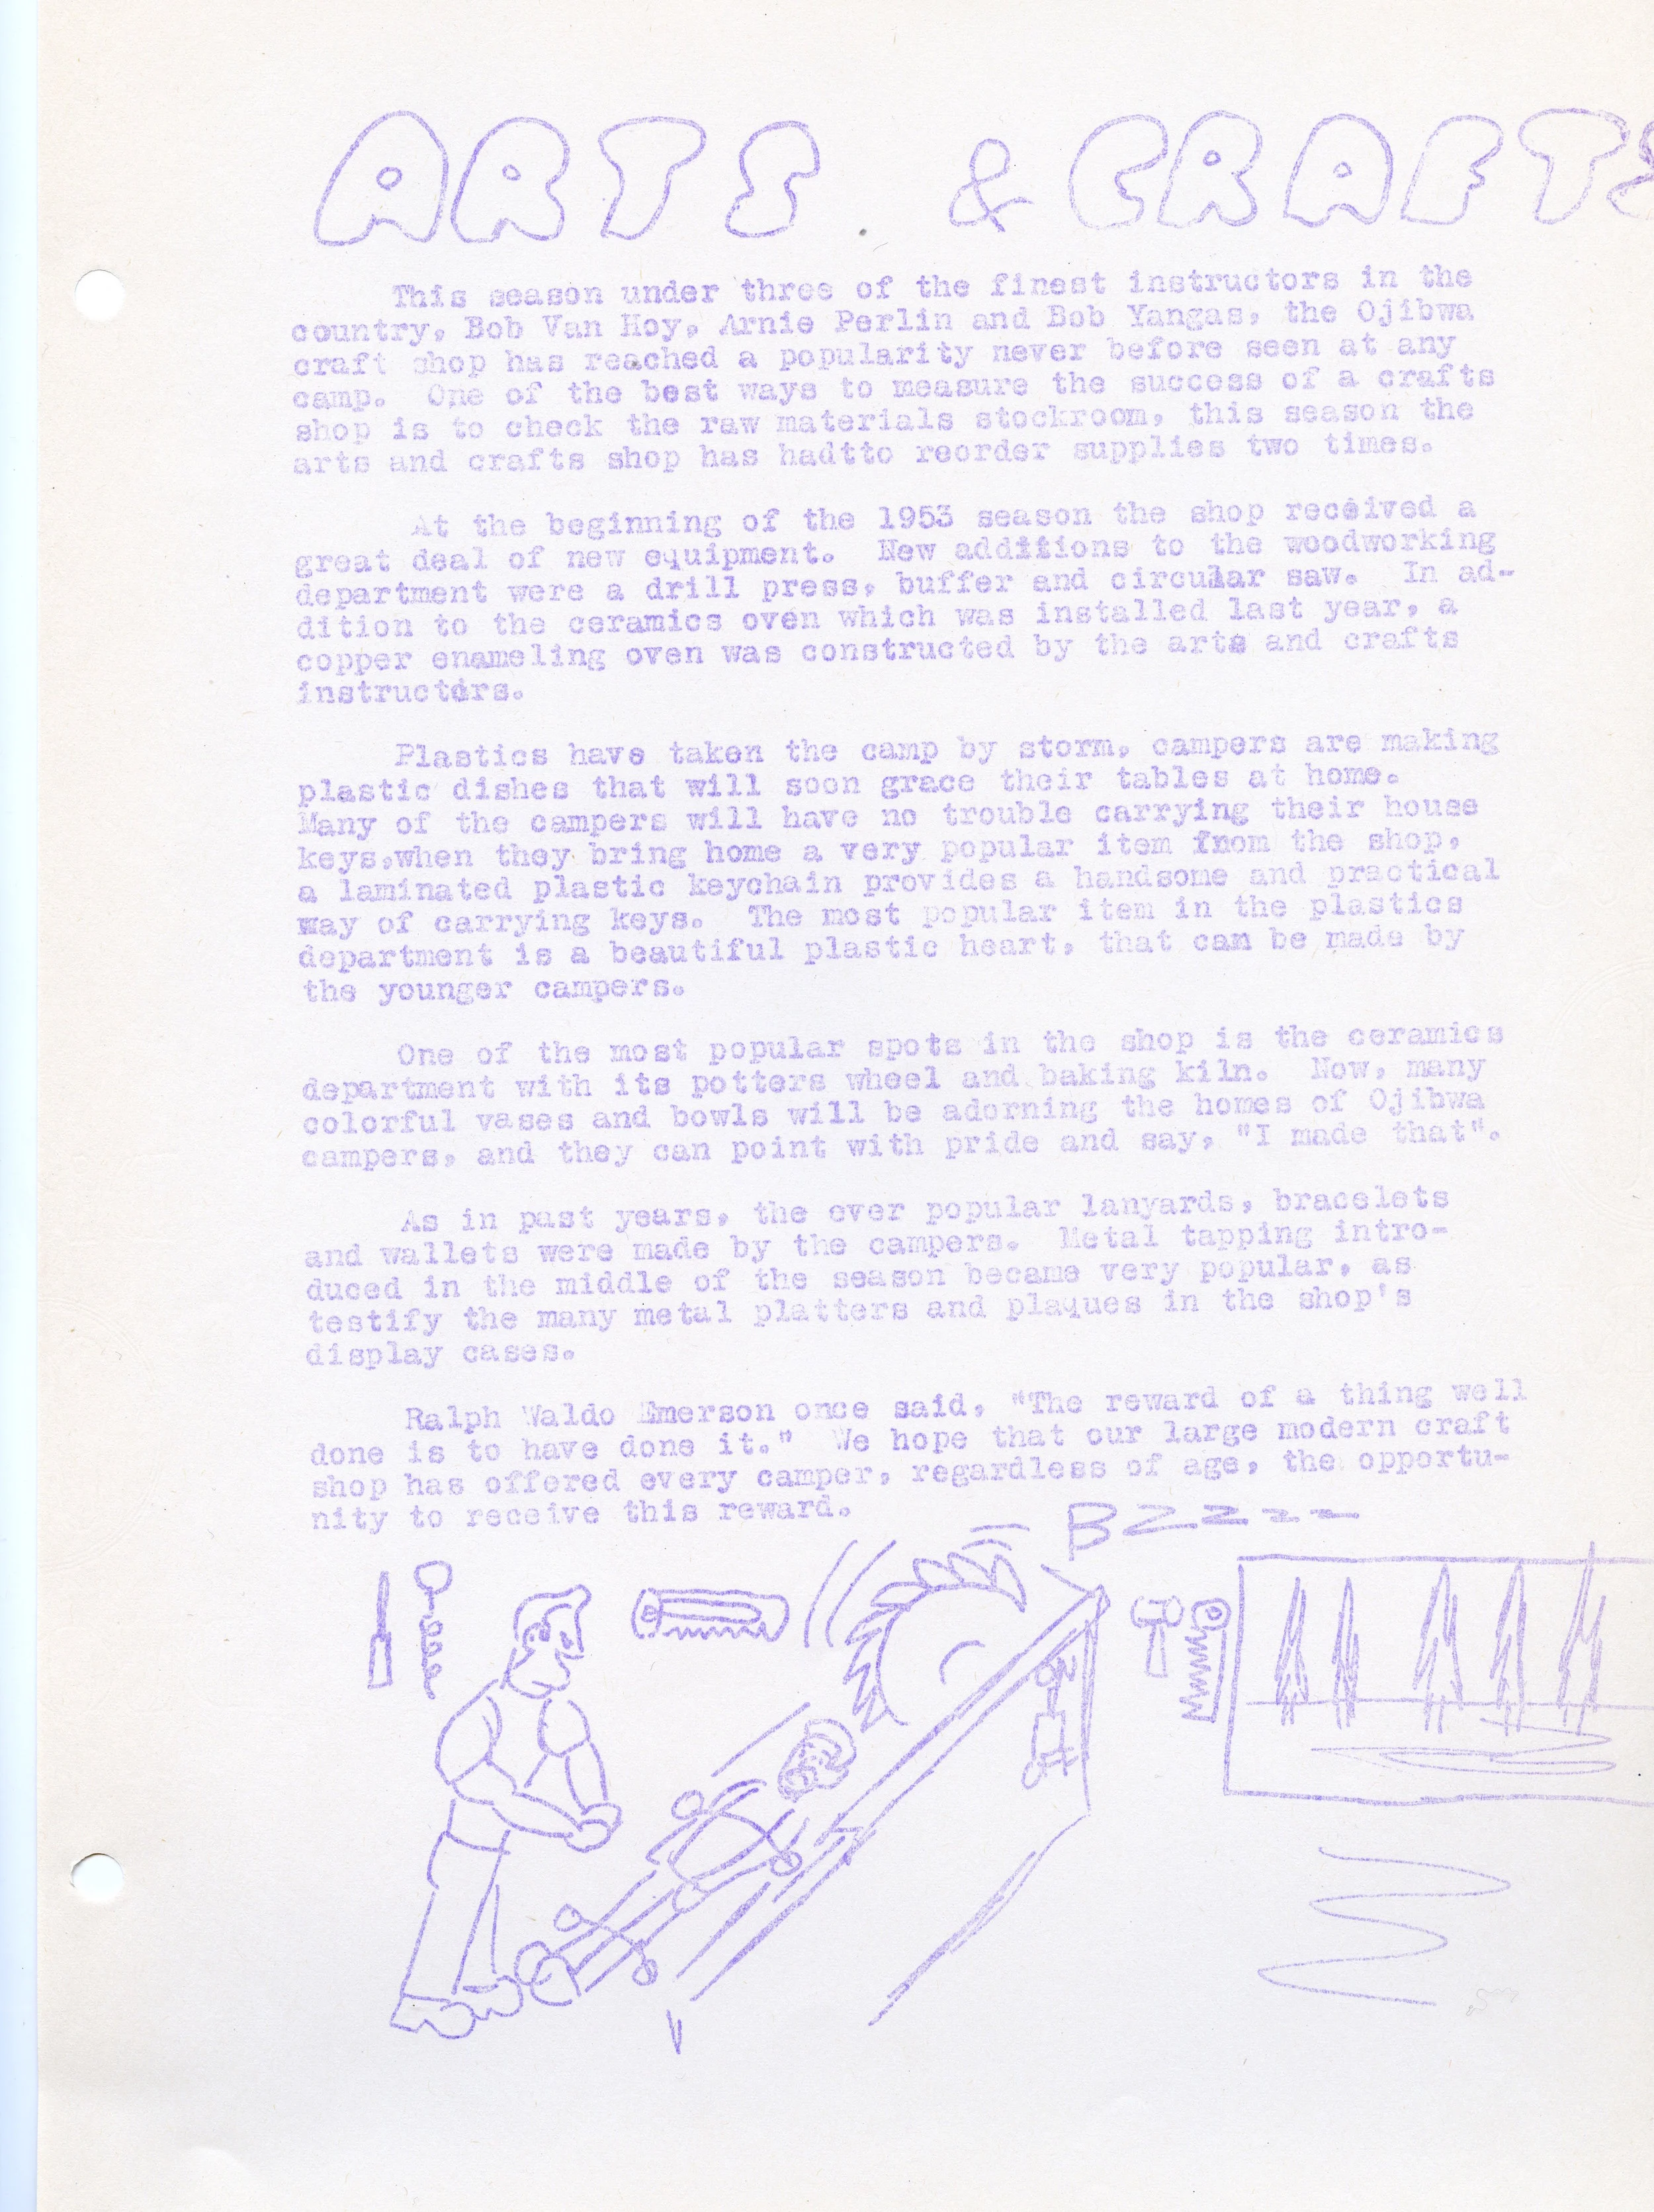 ARTS & CRAFTS
This season under three of the finest instructors in the
country, Bob Van Hoy, Arnie Perlin and Bob Yangas, the Ojibwa
craft shop has reached a popularity never before seen at any
camp. One of the best ways to measure the success of a crafts
shop is to check the raw materials stockroom, this season the
arts and crafts shop has hadtto reorder supplies two times.
At the beginning of the 1953 season the shop received a
great deal of new equipment. New additions to the woodworking
department were a drill press, buffer and circular saw. In ad-
dition to the ceramics oven which was installed last year, a
copper enameling oven was constructed by the arts and crafts
instructors.
Plastics have taken the camp by storm, campers are making
plastic dishes that will soon grace their tables at home.
Many of the campers will have no trouble carrying their house
keys,when they bring home a very popular item from the shop,
a laminated plastic keychain provides a handsome and practical
way of carrying keys. The most popular item in the plastics
department is a beautiful plastic heart, that can be made by
the younger campers.
One of the most popular spots in the shop is the ceramics
department with its potters wheel and baking kiln. Now, many
colorful vases and bowls will be adorning the homes of Ojibwa
campers, and they can point with pride and say, "I made that".
As in past years, the ever popular lanyards, bracelets
and wallets were made by the campers. Metal tapping intro-
duced in the middle of the season became very popular, as
testify the many metal platters and plaques in the shop's
display cases.
Ralph Waldo Emerson once said, "The reward of a thing well
done is to have done it." We hope that our large modern craft
shop has offered every camper, regardless of age, the opportu-
nity to receive this reward.
BZZZZ
ON